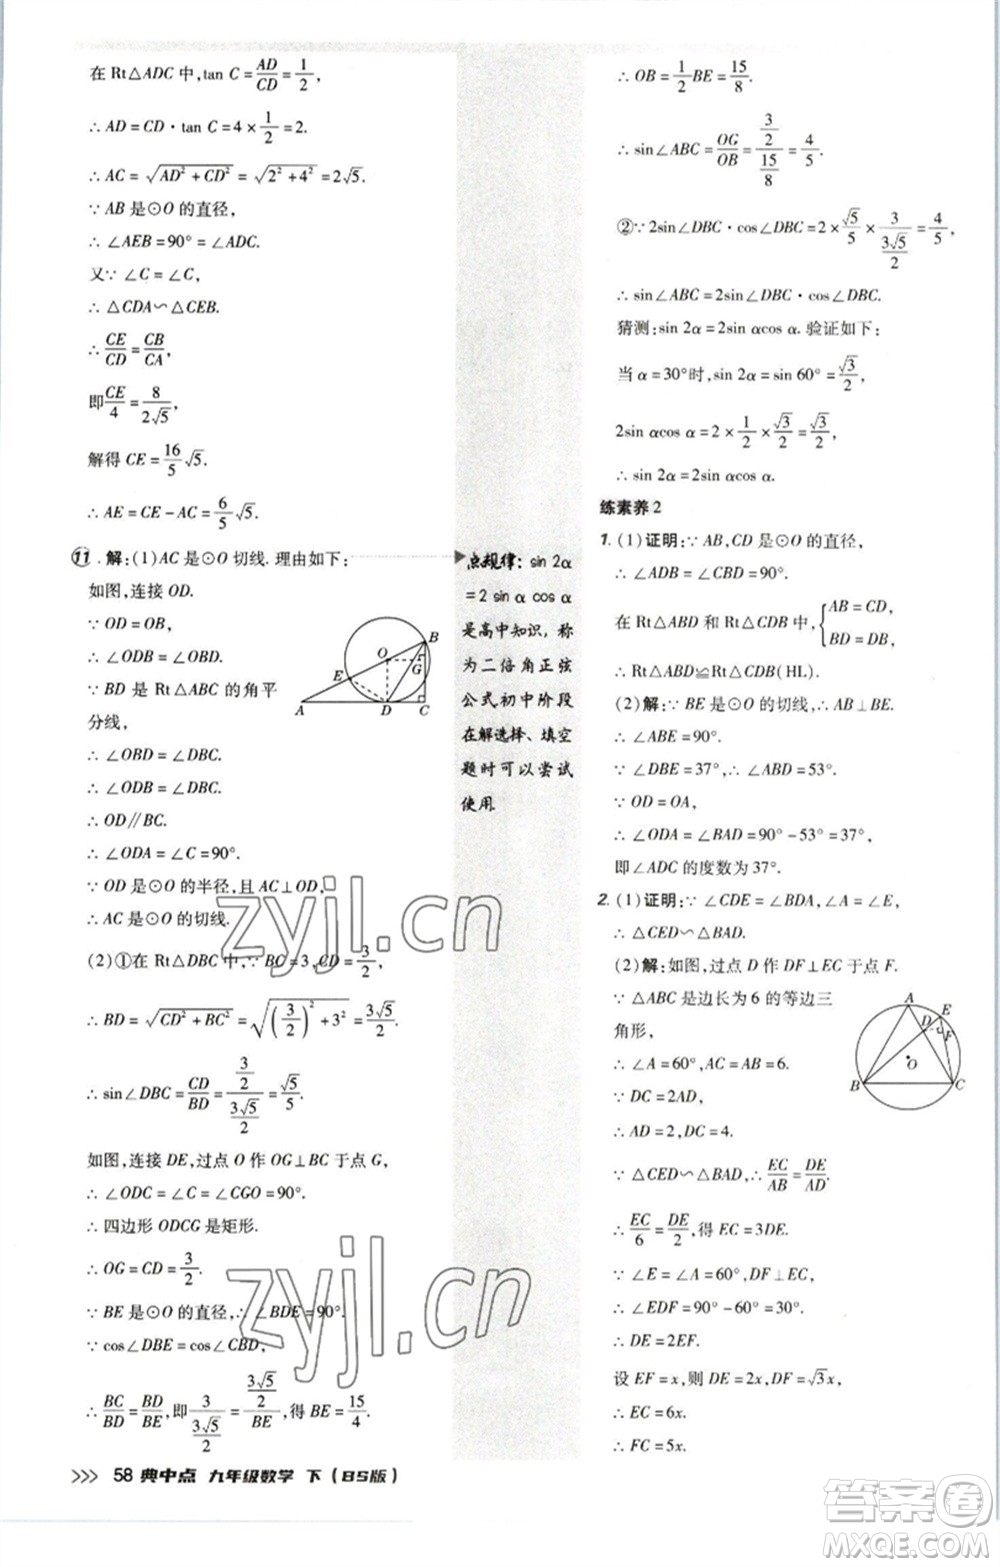 在 Rt△ADC 中,tan C = AD/CD = 1/2,
∴ AD = CD · tan C = 4 × 1/2 = 2.
∴ AC = √(AD² + CD²) = √(2² + 4²) = 2√5.
∵ AB 是⊙O 的直径,
∴ ∠AEB = 90° = ∠ADC.
又∵ ∠C = ∠C,
∴ △CDA∽△CEB.
∴ CE/CD = CB/CA,
即 CE/4 = 8/(2√5),
解得 CE = 16/5 √5.
∴ AE = CE − AC = 6/5 √5.
11. 解:(1)AC 是⊙O 切线. 理由如下:
如图,连接 OD.
∵ OD = OB,
∴ ∠ODB = ∠OBD.
∵ BD 是 Rt△ABC 的角平
分线,
∴ ∠OBD = ∠DBC.
∴ ∠ODB = ∠DBC.
∴ OD∥BC.
∴ ∠ODA = ∠C = 90°.
∵ OD 是⊙O 的半径,且 AC⊥OD,
∴ AC 是⊙O 的切线.
(2)①在 Rt△DBC 中,∵ BC = 3,CD = 3/2,
∴ BD = √(CD² + BC²) = √((3/2)² + 3²) = 3√5/2.
∴ sin∠DBC = CD/BD = (3/2)/(3√5/2) = √5/5.
如图,连接 DE,过点 O 作 OG⊥BC 于点 G,
∴ ∠ODC = ∠C = ∠CGO = 90°.
∴ 四边形 ODCG 是矩形.
∴ OG = CD = 3/2.
∵ BE 是⊙O 的直径,∴ ∠BDE = 90°.
∵ cos∠DBE = cos∠CBD,
∴ BC/BD = BD/BE,即 3/(3√5/2) = (3√5/2)/BE,∴ 得 BE = 15/4.
A
B
C
D
E
G
O
点规律: sin 2α
= 2 sin α cos α
是高中知识, 称
为二倍角正弦
公式初中阶段
在解选择、填空
题时可以尝试
使用.
∴ OB = 1/2 BE = 15/8.
∴ sin∠ABC = OG/OB = (3/2)/(15/8) = 4/5.
②∵ 2sin∠DBC · cos∠DBC = 2 × √5/5 × 3/(3√5/2) = 4/5,
∴ sin∠ABC = 2sin∠DBC · cos∠DBC.
猜测:sin 2α = 2sin αcos α. 验证如下:
当 α = 30°时,sin 2α = sin 60° = √3/2,
2sin αcos α = 2 × 1/2 × √3/2 = √3/2.
∴ sin 2α = 2sin αcos α.
练素养 2
1. (1)证明:∵ AB,CD 是⊙O 的直径,
∴ ∠ADB = ∠CBD = 90°.
在 Rt△ABD 和 Rt△CDB 中, { AB = CD,
BD = DB,
∴ Rt△ABD≌Rt△CDB(HL).
(2)解:∵ BE 是⊙O 的切线,∴ AB⊥BE.
∴ ∠ABE = 90°.
∵ ∠DBE = 37°,∴ ∠ABD = 53°.
∵ OD = OA,
∴ ∠ODA = ∠BAD = 90° − 53° = 37°,
即∠ADC 的度数为 37°.
2. (1)证明:∵ ∠CDE = ∠BDA,∠A = ∠E,
∴ △CED∽△BAD.
(2)解:如图,过点 D 作 DF⊥EC 于点 F.
∵ △ABC 是边长为 6 的等边三
角形,
∴ ∠A = 60°,AC = AB = 6.
∵ DC = 2AD,
∴ AD = 2,DC = 4.
∵ △CED∽△BAD,∴ EC/AB = DE/AD.
∴ EC/6 = DE/2,得 EC = 3DE.
∵ ∠E = ∠A = 60°,DF⊥EC,
∴ ∠EDF = 90° − 60° = 30°.
∴ DE = 2EF.
设 EF = x,则 DE = 2x,DF = √3x,
∴ EC = 6x.
∴ FC = 5x.
A
B
C
D
E
F
O
>>> 58 典中点 九年级数学 下(BS版)
zyjl.cn
zyjl.cn
答案圈
MXQE.COM